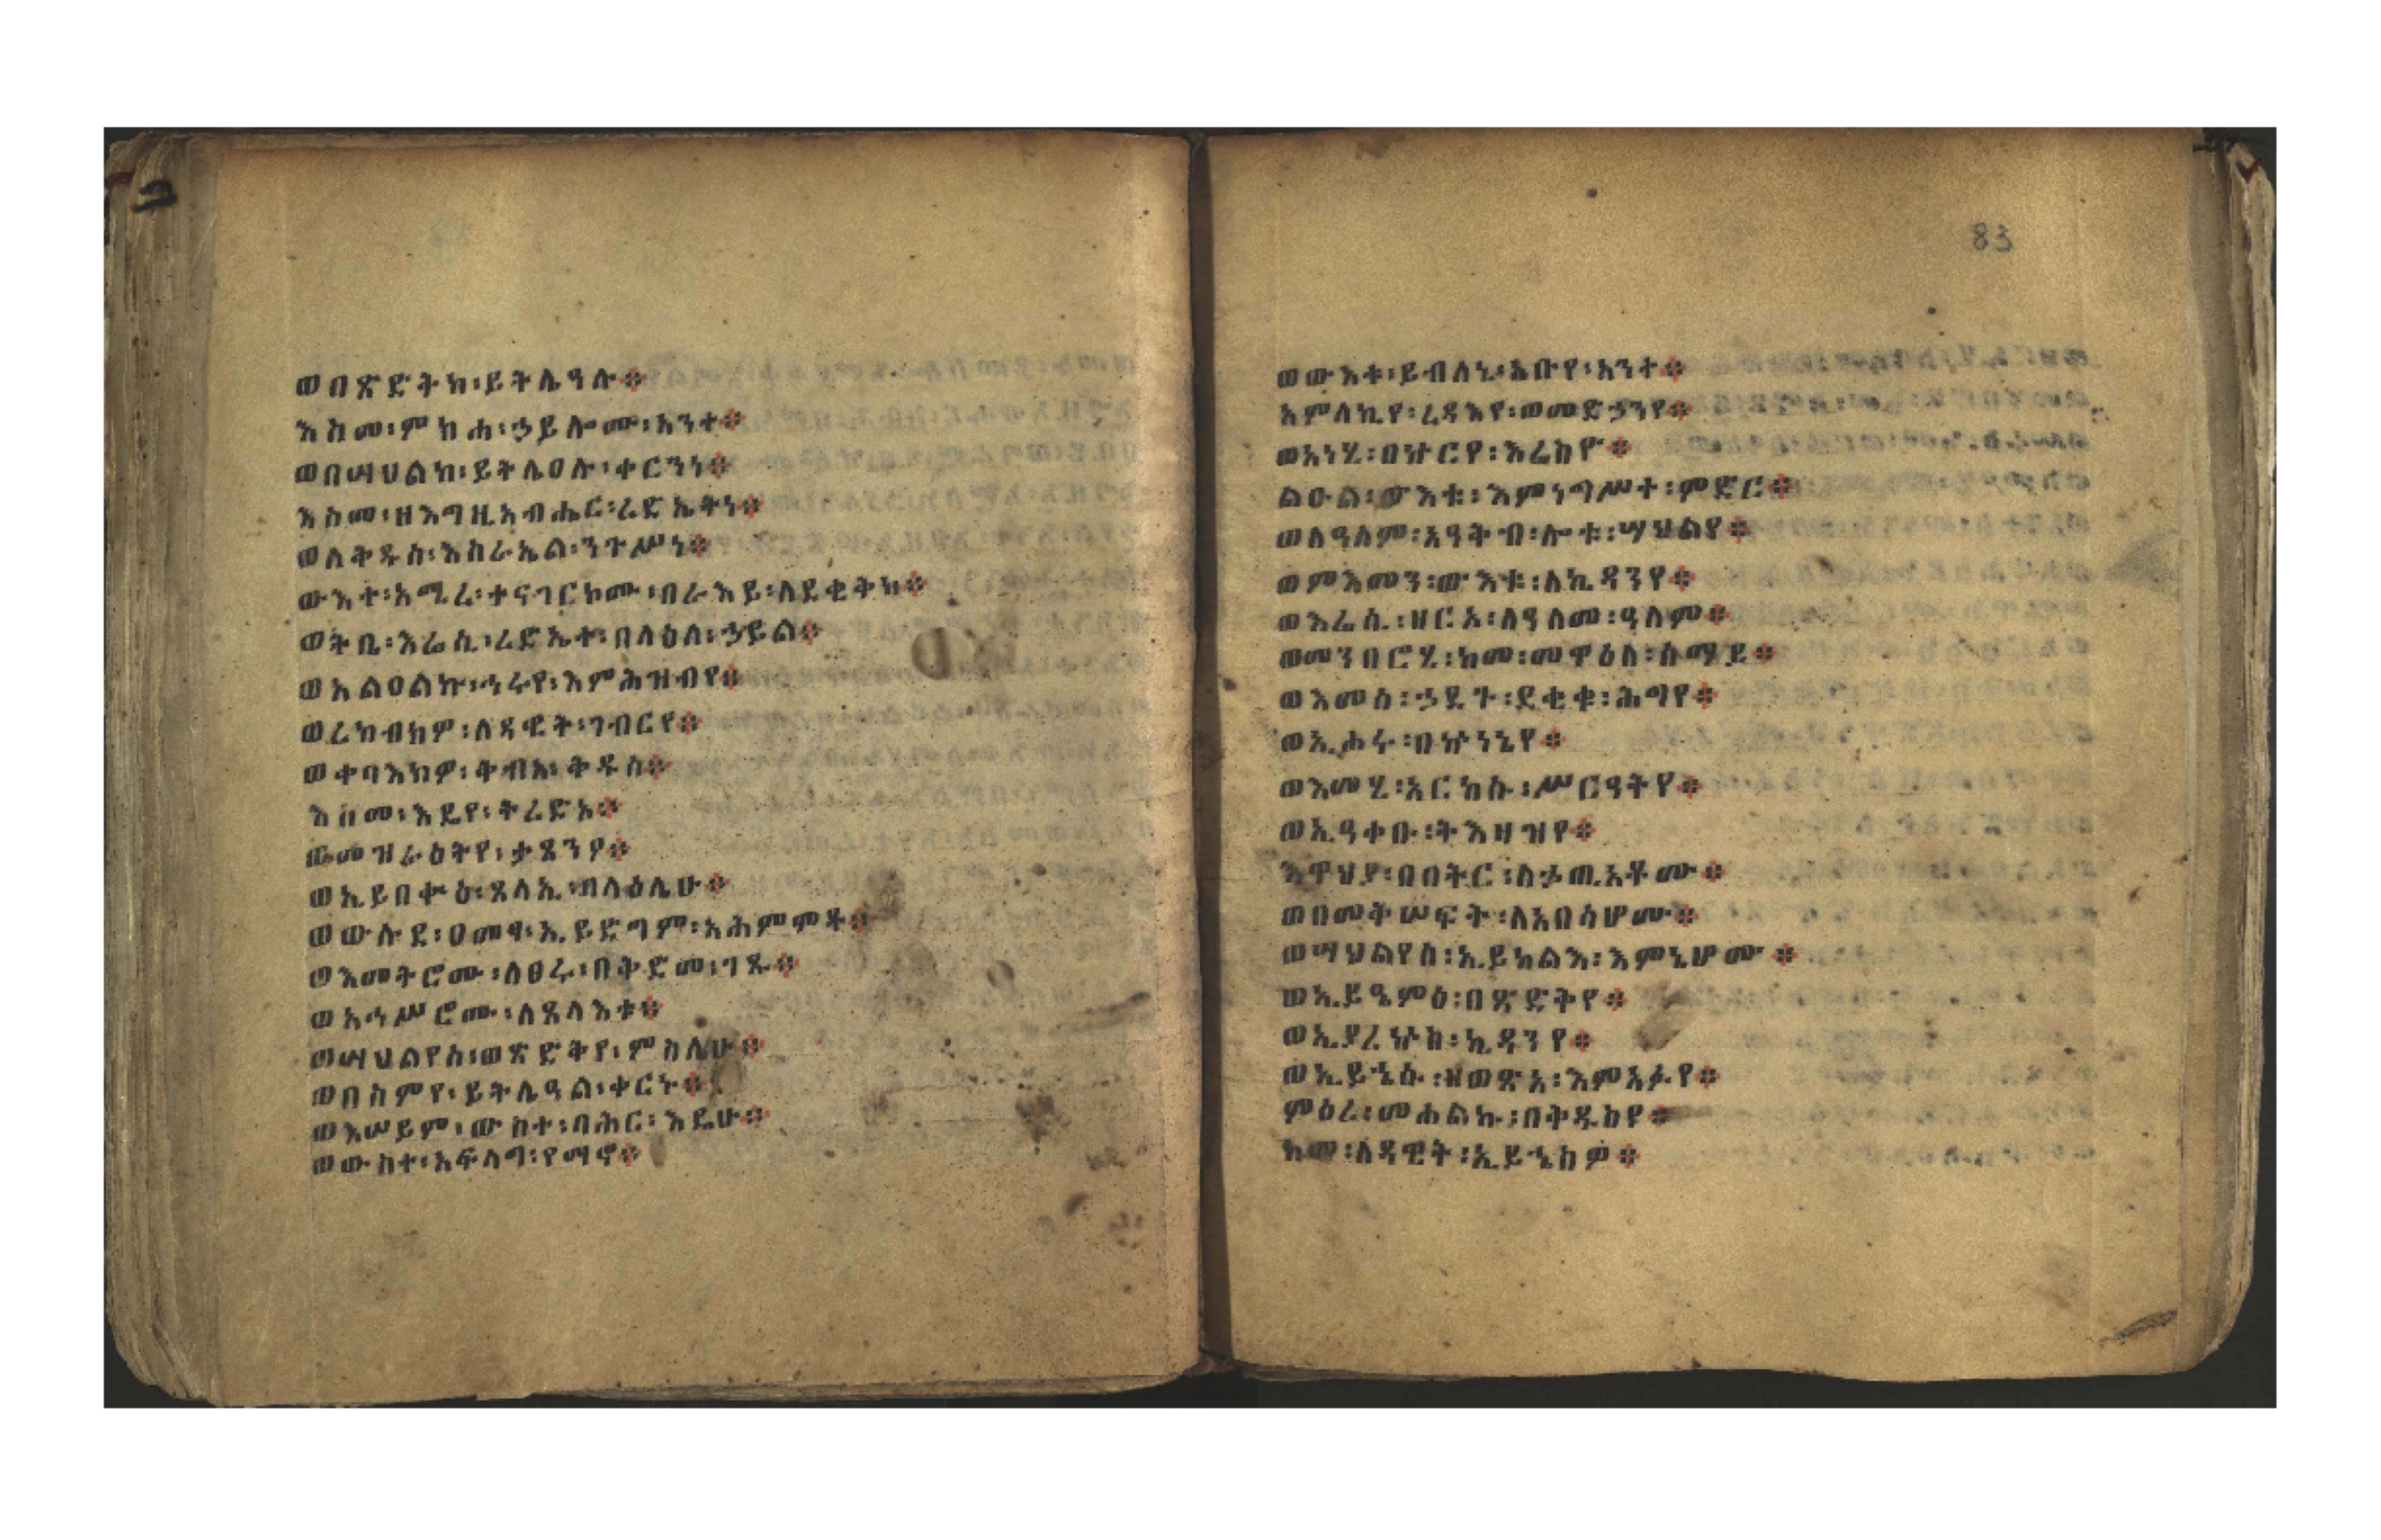 ወበጽድትከ፡ይትሌዓሉ።
እስመ፡ምክሐ፡ኃይሎሙ፡አንተ።
ወበሣህልከ፡ይትሌዐሉ፡ቀርንነ።
እስመ፡ዘእግዚአብሔር፡ረድኤትነ።
ወለቅዱስ፡እስራኤል፡ንጉሥነ።
ውእተ፡አሚረ፡ተናገርኮሙ፡በራእይ፡ለደቂቅከ።
ወትቤ፡እሬሲ፡ረድኤተ፡በላዕለ፡ኃይል።
ወአልዐልኩ፡ኅሩየ፡እምሕዝብየ።
ወረከብክዎ፡ለዳዊት፡ገብርየ።
ወቀባእክዎ፡ቅብአ፡ቅዱስ።
እስመ፡እዴየ፡ትረድኦ።
ወመዝራዕትየ፡ታጸንዖ።
ወኢይበቍዕ፡ጸላኢ፡በላዕሌሁ።
ወውሉደ፡ዐመፃ፡ኢይደግም፡አሕምሞቶ።
ወእመትሮሙ፡ለፀሩ፡በቅድመ፡ገጹ።
ወአኀሥሮሙ፡ለጸላእቱ።
ወሣህልየሰ፡ወጽድቅየ፡ምስሌሁ።
ወበስምየ፡ይትሌዓል፡ቀርኑ።
ወእሠይም፡ውስተ፡ባሕር፡እዴሁ።
ወውስተ፡አፍላግ፡የማኖ።
83
ወውእቱ፡ይብለኒ፡አቡየ፡አንተ።
አምላኪየ፡ረዳእየ፡ወመድኃንየ።
ወአነሂ፡በኵርየ፡እሬስዮ።
ልዑል፡ውእቱ፡እምነግሥተ፡ምድር።
ወለዓለም፡አዓቅብ፡ሎቱ፡ሣህልየ።
ወምእመን፡ውእቱ፡ለኪዳንየ።
ወእሬሲ፡ዘርኦ፡ለዓለመ፡ዓለም።
ወመንበሮሂ፡ከመ፡መዋዕለ፡ሰማይ።
ወእመሰ፡ኃደጉ፡ደቂቁ፡ሕግየ።
ወኢሖሩ፡በኵነኔየ።
ወእመሂ፡አርኰሱ፡ሥርዓትየ።
ወኢዓቀቡ፡ትእዛዝየ።
እዋህያ፡በበትር፡ለኃጢአቶሙ።
ወበመቅሠፍት፡ለአበሳሆሙ።
ወሣህልየሰ፡ኢይከልእ፡እምኔሆሙ።
ወኢይዔምፅ፡በጽድቅየ።
ወኢያረኵስ፡ኪዳንየ።
ወኢይሔሱ፡ዘወፅአ፡እምአፉየ።
ምዕረ፡መሐልኩ፡በቅዱስየ።
ከመ፡ለዳዊት፡ኢይሔስዎ።